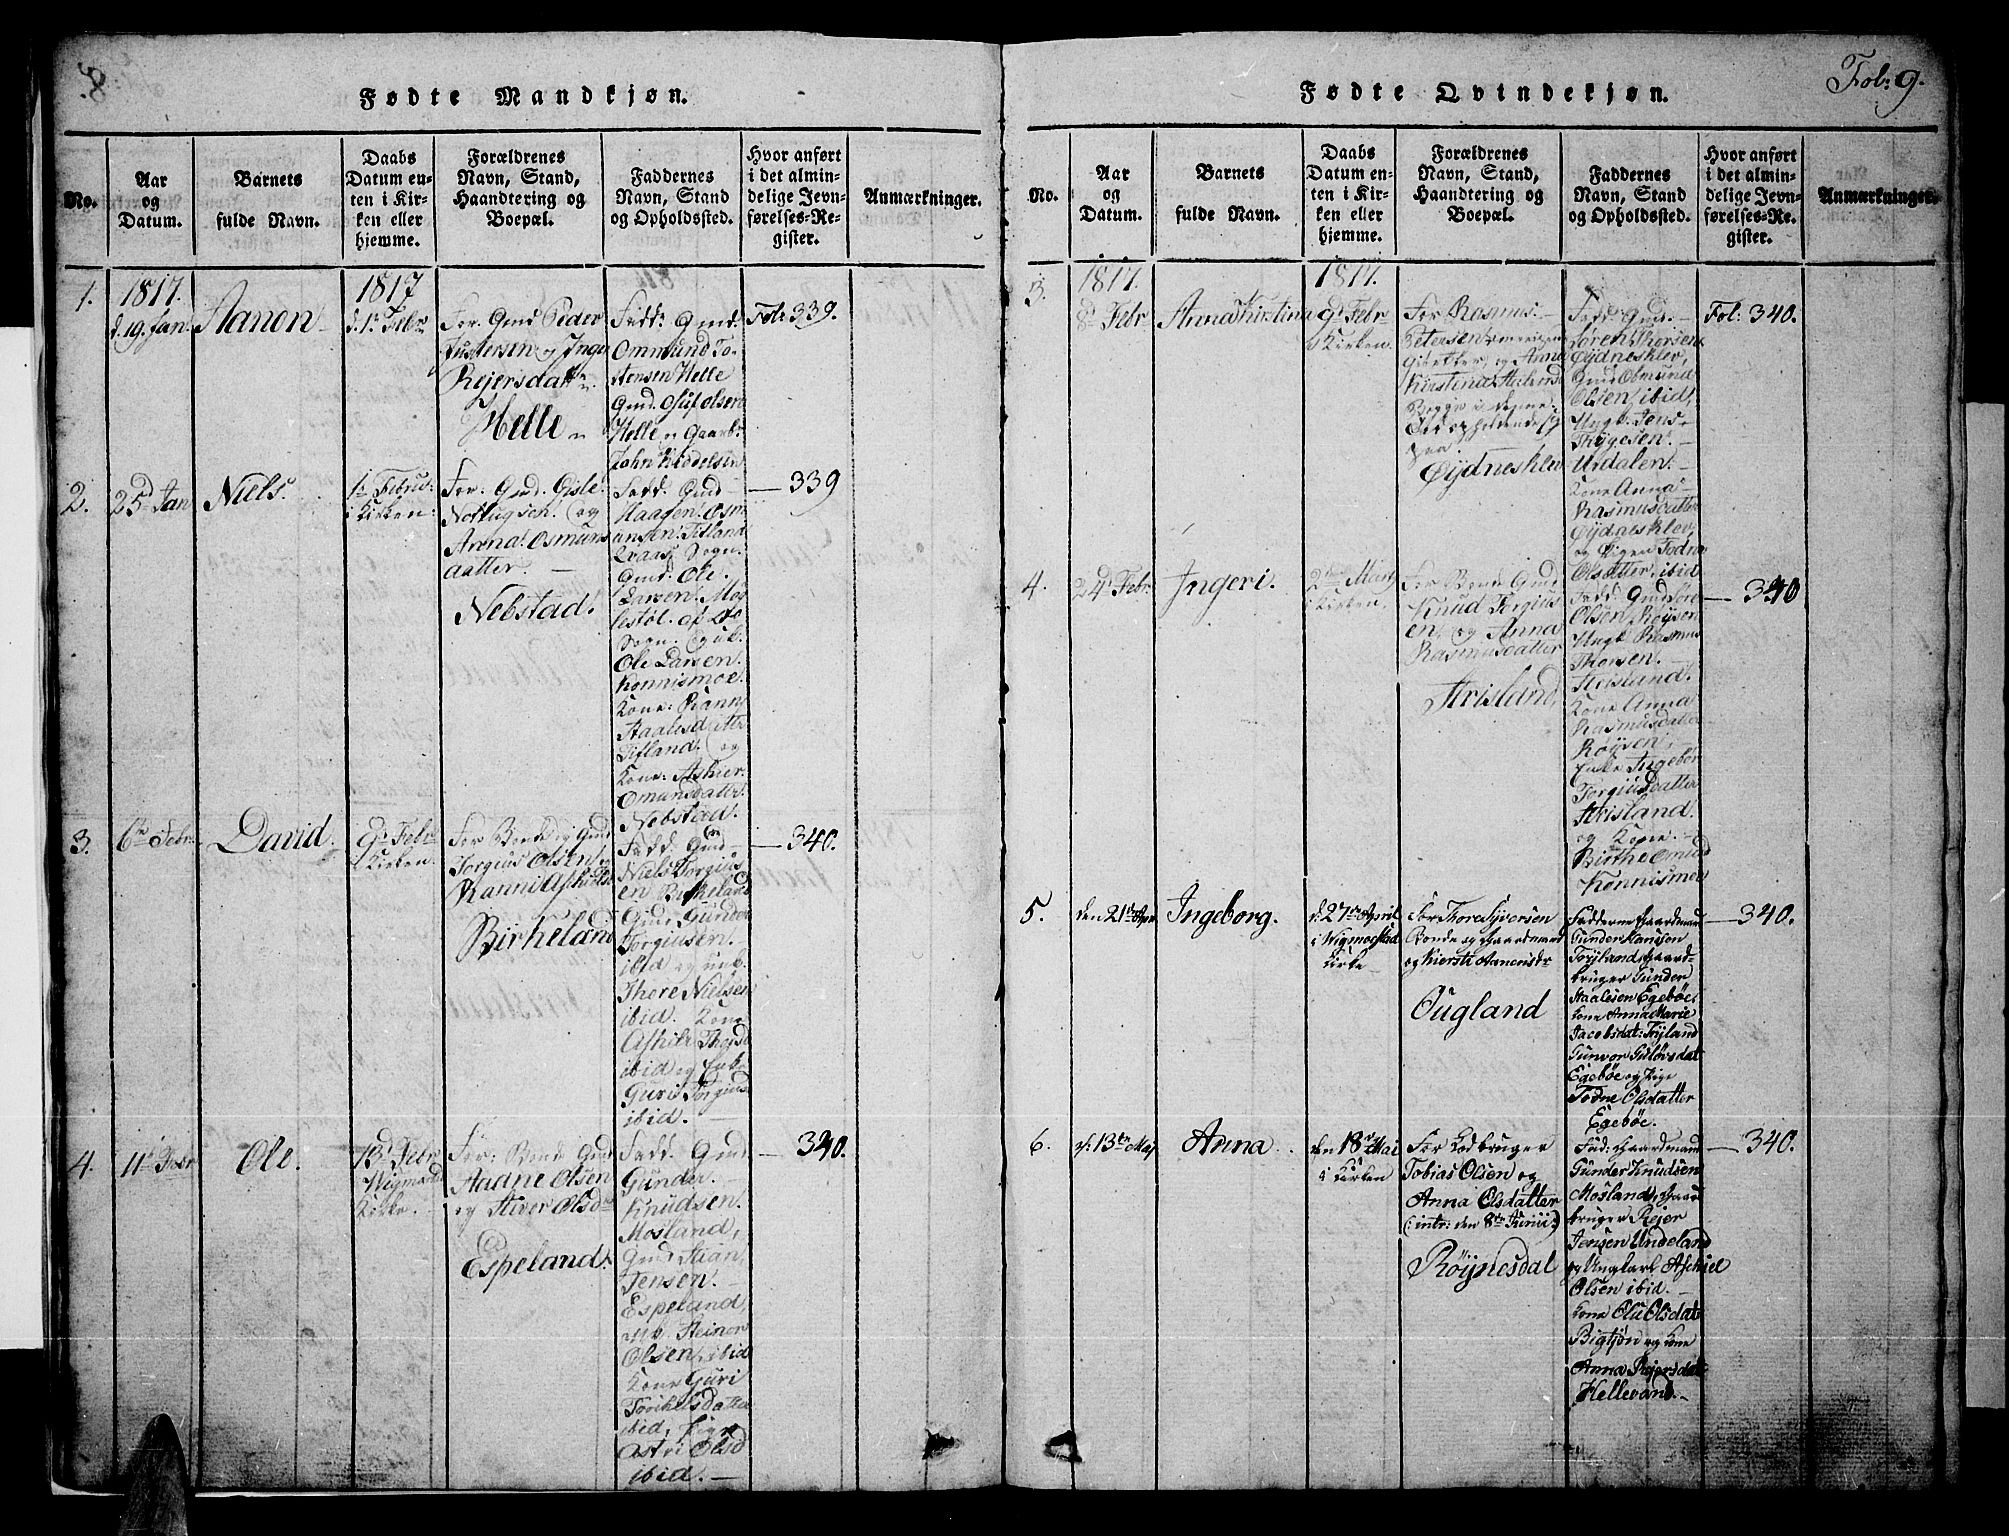 8.
Fødte Mandkjøn.
No.
Aar
og
Datum.
Barnets
fulde Navn.
Daabs
Datum en-
ten i Kir-
ken eller
hjemme.
Forældrenes
Navn, Stand,
Haandtering og
Boepæl.
Faddernes
Navn, Stand
og Opholdssted.
Hvor anført
i det almin-
delige Jevn-
førelses-Re-
gister.
Anmærkninger.
1.
1817.
d. 19. Jan.
Aanon
1817
d. 1. Febr.
For. Gmd Peder
Justersen og Inger
Rejersdatter
Helle
Fadd. Gmd.
Ommund To-
stensen Helle
Gmd. Oluf Olsen
Helle
John Kiddelsen
Fol: 339.
2.
25d Jan
Niels.
1. Febru:
i Kirken.
For. Gmd. Gisle
og
Anna Osmunds
datter.
Nebstad.
Fadd. Gmd
Haagen Osm
unsen Tifland
Qvaas Sogn.
Gmd. Ole
Larsen.
Sogn.
Ole Larsen
Konnismoe.
Kone:
Staalesdatter
Tifland. og
Kone: Ashier
Omunsdatter
Nebstad.
339
3.
6te Febr.
David.
9d Febr
i Kirken.
For. Bonde og Gmd
Torgius Olsen og
Ranni
Birkeland
Fadd. Gmd
Niels Torgius
en Birkeland
Gmd. Gunder
Torgiusen
ibid og unk.
Thore Nielsen
ibid. Kone
ibid og Enke
Guri Torgius
ibid.
340.
4.
11te Febr
Ole.
Febr
Wigmostad
Kirke.
For: Bonde Gmd
Aadne Olsen
og Siver Olsdr
Espeland.
Fadd. Gmd.
Gunder
Knudsen
Mosland,
Gmd. Stian
Jensen.
Espeland,
Steinor
Olsen, ibid
Kone Guri
Torkelsdatter
ibid, Pige
Astri Olsd
ibid.
340.
Fol: 9.
Fødte Qvindekjøn.
No.
Aar
og
Datum.
Barnets
fulde Navn.
Daabs
Datum en-
ten i Kir-
ken eller
hjemme.
Forældrenes
Navn, Stand,
Haandtering og
Boepæl.
Faddernes
Navn, Stand
og Opholdssted.
Hvor anført
i det almin-
delige Jevn-
førelses-Re-
gister.
Anmærkninger.
3.
1817.
8de Febr
Anna Kirstina
1817.
9d Febr
i Kirken.
For Rasmus
Petersen
og Anna
Kirstena
Begge i denne
Øydneskler
Fadd. Gmd.
Søren Thorsen
Øydneskler,
Gmd Osmund
Olsen ibid,
Ungk. Jens
Trygesen
Urdalen.
Kone Anna
Rasmusdatter
Øydneskler,
og Pigen Todne
Olsdatter, ibid
Fol: 340.
4.
24d Febr.
Ingeri.
2den Marts
i Kirken.
For Bonde Gmd
Knud Torgius
en, og Anna
Rasmusdatter
Strisland,
Fadd. Gmd
Olsen Røysen
Ungk Rasmus
Thorsen.
Strisland.
Kone Anna
Rasmusdatter
Røysen,
Enke Ingebor
Torgiusdatter
Strisland.
og Kone.
Birthe Omund
Konnismoe
340
5.
den 21de Apr.
Ingeborg.
d: 27de April
i Wigmostad
Kirke
For Thore Syversen
Bonde og Gaardmand
og Kiersti Aanensdr
Ougland
Fadderne Gaardmand
Gunder Hansen
Tryland, Gaard-
bruger Gunder
Staalesen Egebøe,
Kone Anna Marie
Jacobsdat: Tryland
Gunvor Gulovsdat
Egebøe og Pige
Todne Olsdatter
Egebøe.
340.
6.
d. 13de Maj
Anna
den 18de Mai
i Kirken
For Lodbruger
Tobias Olsen og
Anna Olsdatter
(: intr: den 8de Junii:)
Røynesdal
Fad: Gaardmand
Gunder Knudsen
Mosland, Gaard
bruger Rejer
Jensen Undeland
og Ungkarl Aschiel
Olsen ibid.
Kone Olu Olsdat
Bigtjøn og Kone
Anna Rejersdat
Hellevand.
340.